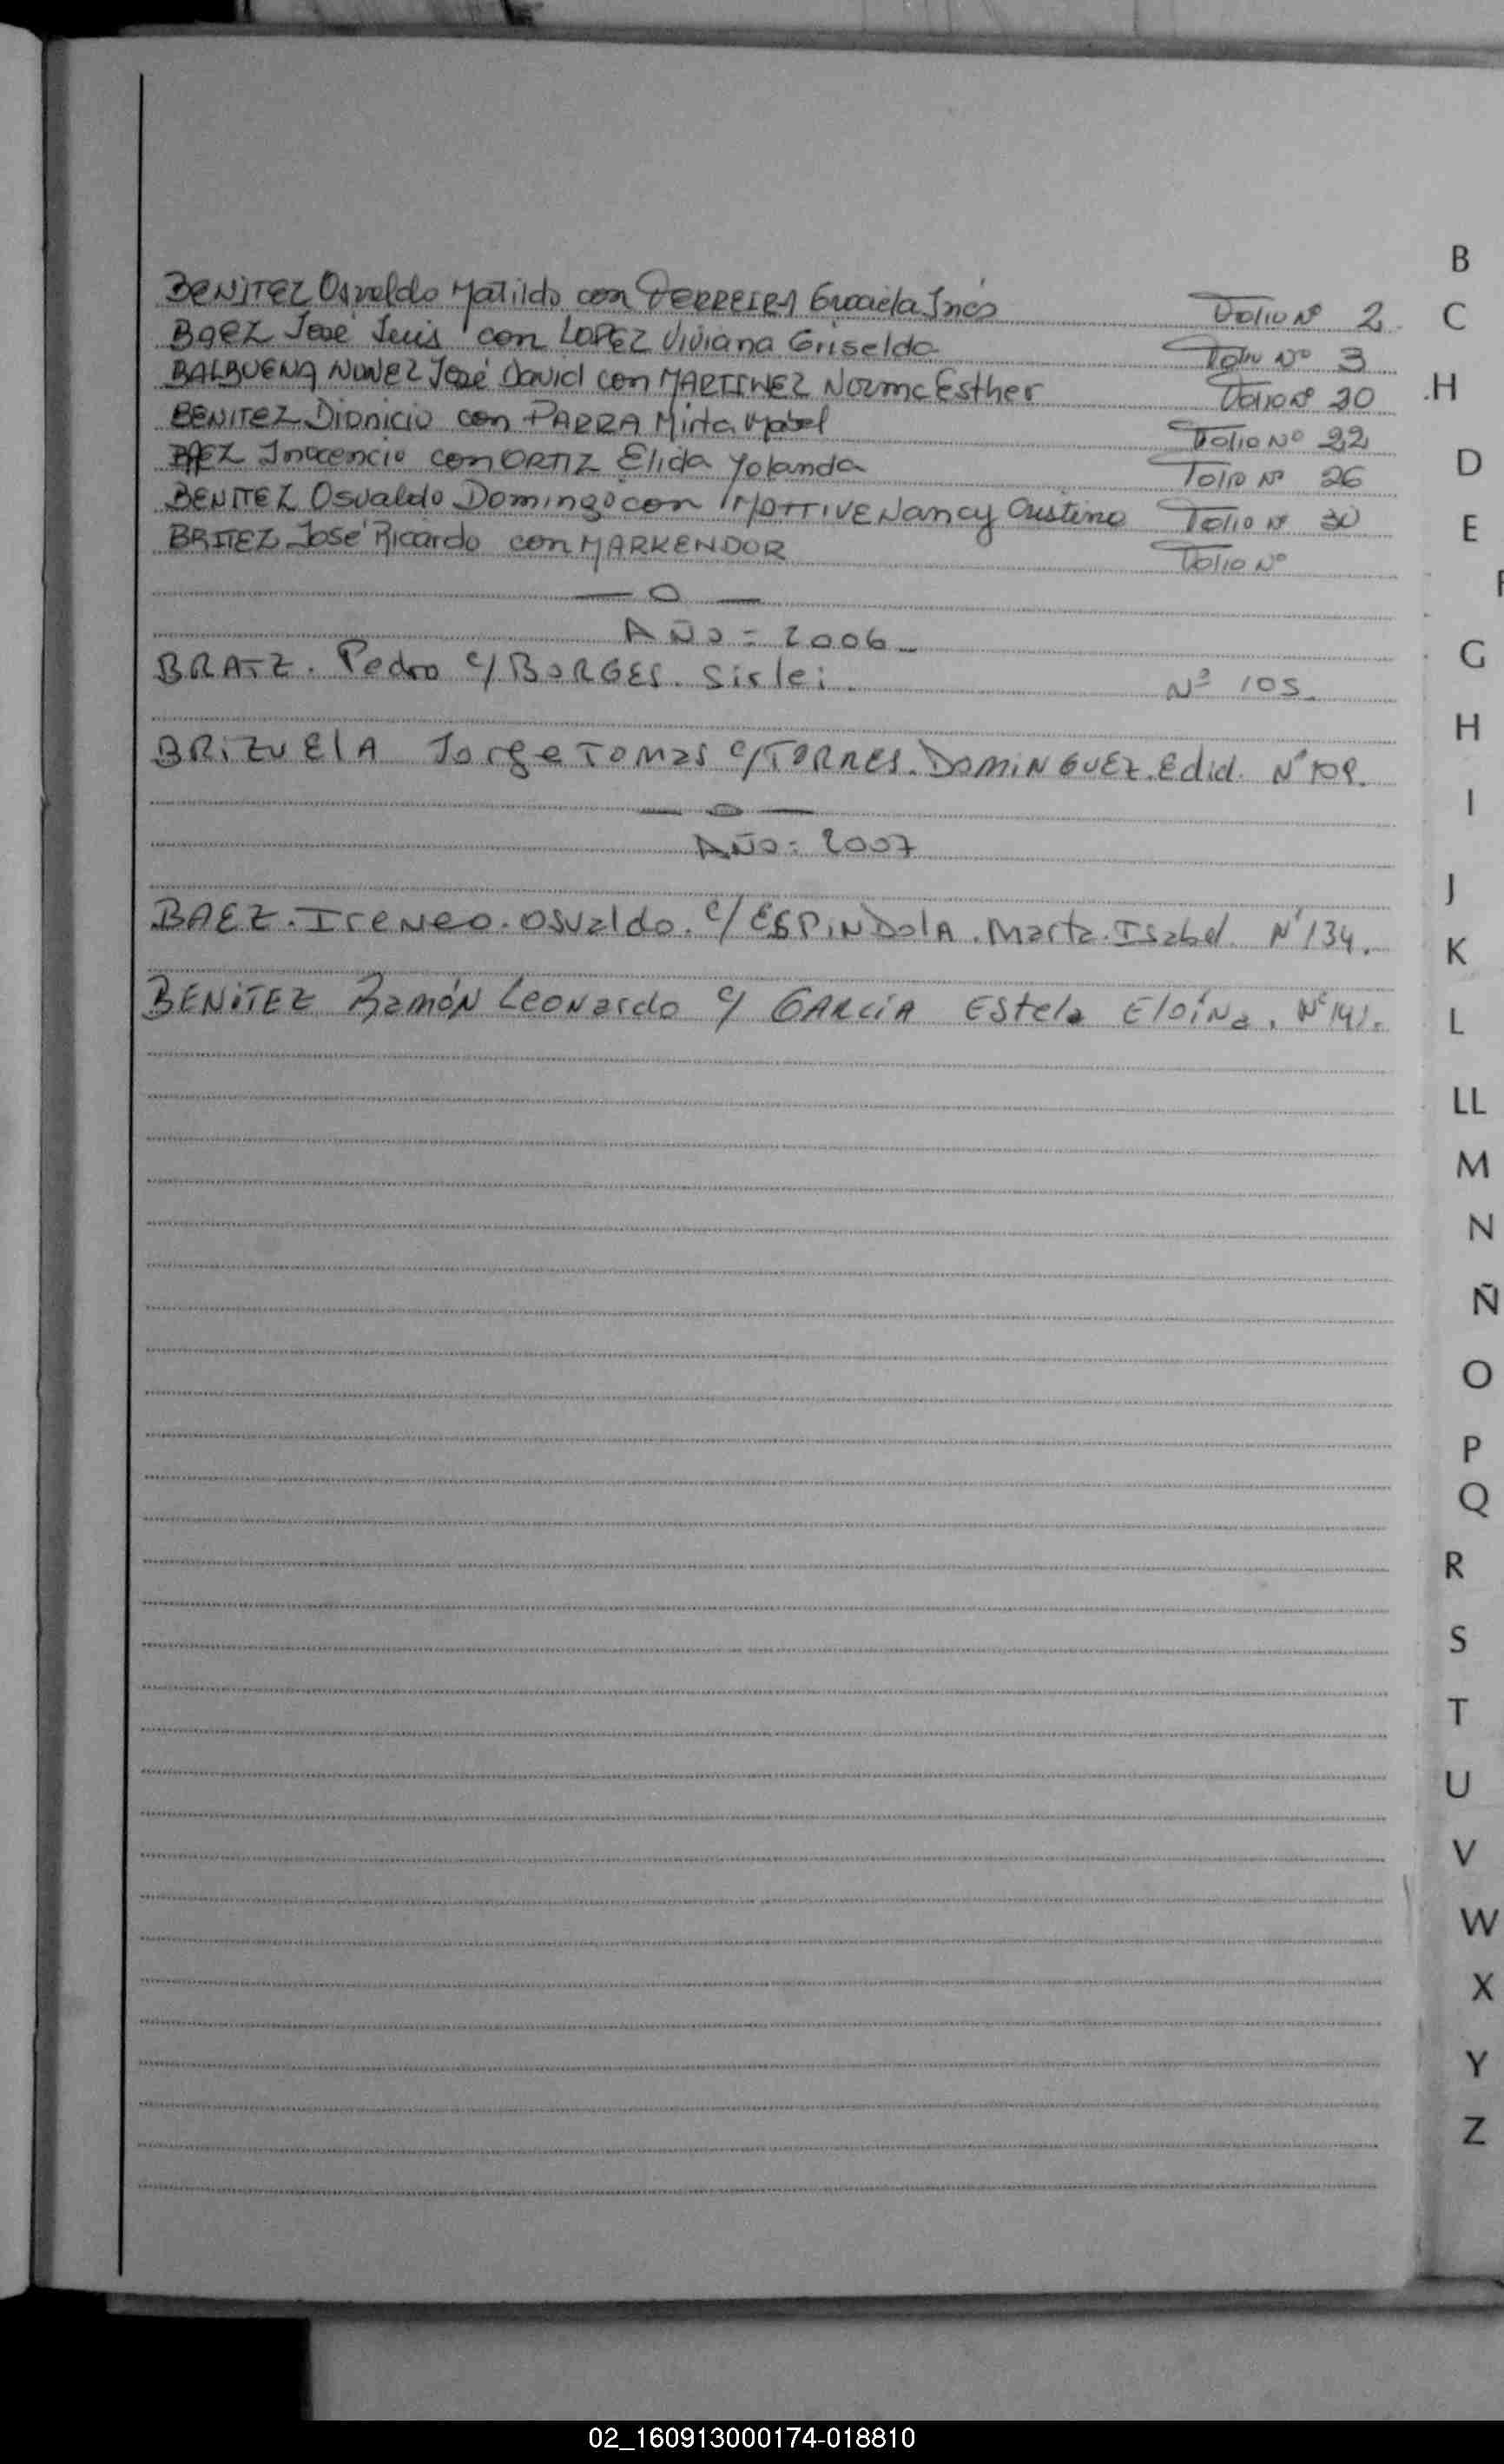 BENITEZ Osvaldo Matildo con FERREIRA Graciela Inés Folio Nº 2
BAEZ José Luis con LOPEZ Viviana Griselda Folio Nº 3
BALBUENA NUNEZ José David con MARTINEZ Norma Esther Folio Nº 20
BENITEZ Dionicio con PARRA Mirta Mabel Folio Nº 22
BAEZ Inocencio con ORTIZ Elida Yolanda Folio Nº 26
BENITEZ Osvaldo Domingo con Nancy Cristina Folio Nº 30
BRITEZ José Ricardo con MARKENDOR Folio Nº
— o —
AÑO = 2006
BRATZ. Pedro c/ BORGES. Sirlei. Nº 105.
BRIZUELA Jorge TOMAS c/ TORRES. DOMINGUEZ. Edid. Nº 109.
— o —
AÑO: 2007
BAEZ. Ireneo. Osvaldo. c/ ESPINDOLA. Marta. Isabel. Nº 134.
BENITEZ Ramón Leonardo c/ GARCIA Estela Eloína. Nº 141.
B
C
H
D
E
G
H
I
J
K
L
LL
M
N
Ñ
O
P
Q
R
S
T
U
V
W
X
Y
Z
02_160913000174-018810